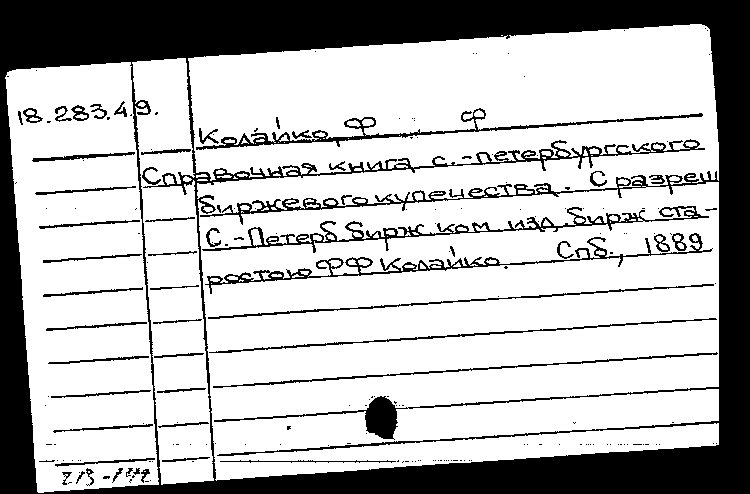 18.283.4.9.
Колайко, Ф Ф
Справочная книга с.-петербургского
биржевого купечества. С разреш
С.-Петерб. бирж ком изд. бирж ста-
ростою ФФ Колайко. Спб., 1889